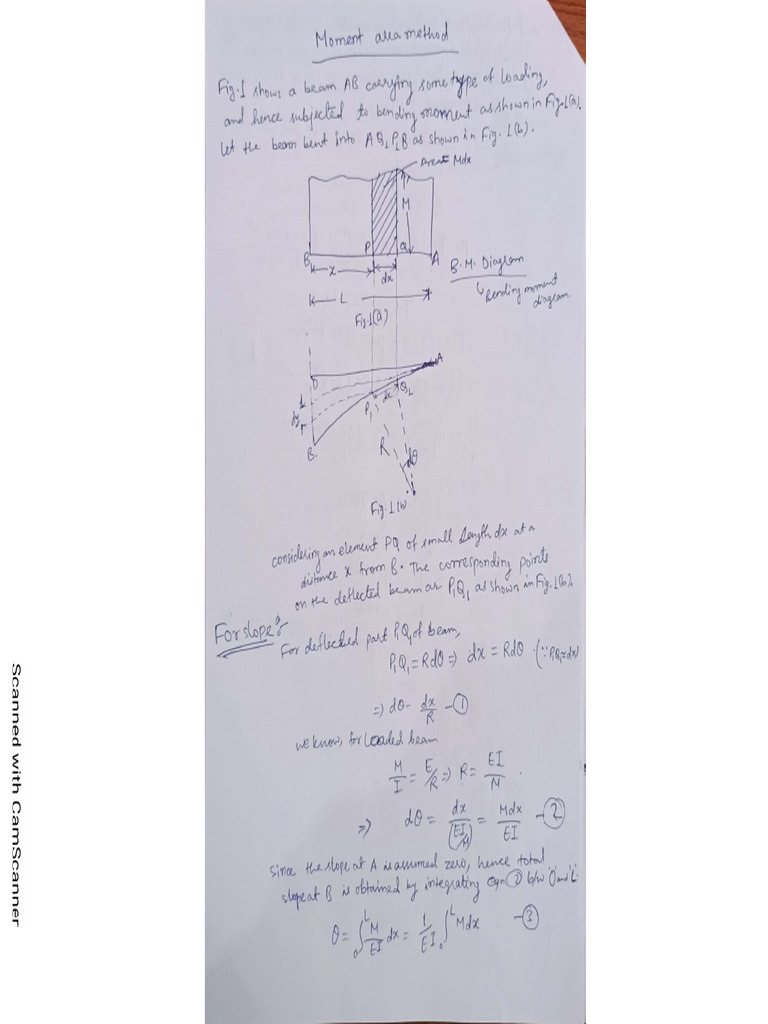 Moment area method
Fig.1 shows a beam AB carrying some type of loading,
and hence subjected to bending moment as shown in Fig.1(a).
let the beam bent into AQ1P1B as shown in Fig. 1(b).
Area = Mdx
M
B P Q A
x dx
B.M. Diagram
↳ Bending moment
diagram
L
Fig.1(a)
A
dy
P1 dx Q1
B
R dθ
Fig.1(b)
considering an element PQ of small length dx at a
distance x from B. The corresponding points
on the deflected beam are P1Q1 as shown in Fig.1(b).
For slope:
For deflected part P1Q1 of beam,
P1Q1 = Rdθ ⇒ dx = Rdθ (∵ P1Q1 = dx)
⇒ dθ = dx/R - ①
we know, for loaded beam
M/I = E/R ⇒ R = EI/M .
⇒ dθ = dx/(EI/M) = Mdx/EI - ②
Since the slope at A is assumed zero, hence total
slope at B is obtained by integrating eqn ② b/w 0 and L.
θ = ∫₀ᴸ M/EI dx = 1/EI ∫₀ᴸ Mdx - ③
Scanned with CamScanner